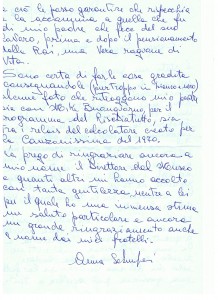 e ciò le posso garantire che rispecchia
e la accomuna a quella che fu
di mio padre che fece del suo
lavoro, prima e dopo il pensionamento
dalla Rai, una vera ragione di
Vita.
Sono certa di farle cosa gradita
consegnandole (purtroppo in bianco e nero)
alcune foto che ritraggono mio padre
sia con Mike Buongiorno, per il
programma del Rischiatutto, sia
fra i relais del calcolatore creato per
la Canzonissima del 1970.
La prego di ringraziare ancora a
mio nome il Direttore del Museo
e quanti altri mi hanno accolto
con tanta gentilezza, mentre a lei
per il quale ho una immensa stima
un saluto particolare e ancora
un grande ringraziamento anche
a nome dei miei fratelli.
Anna